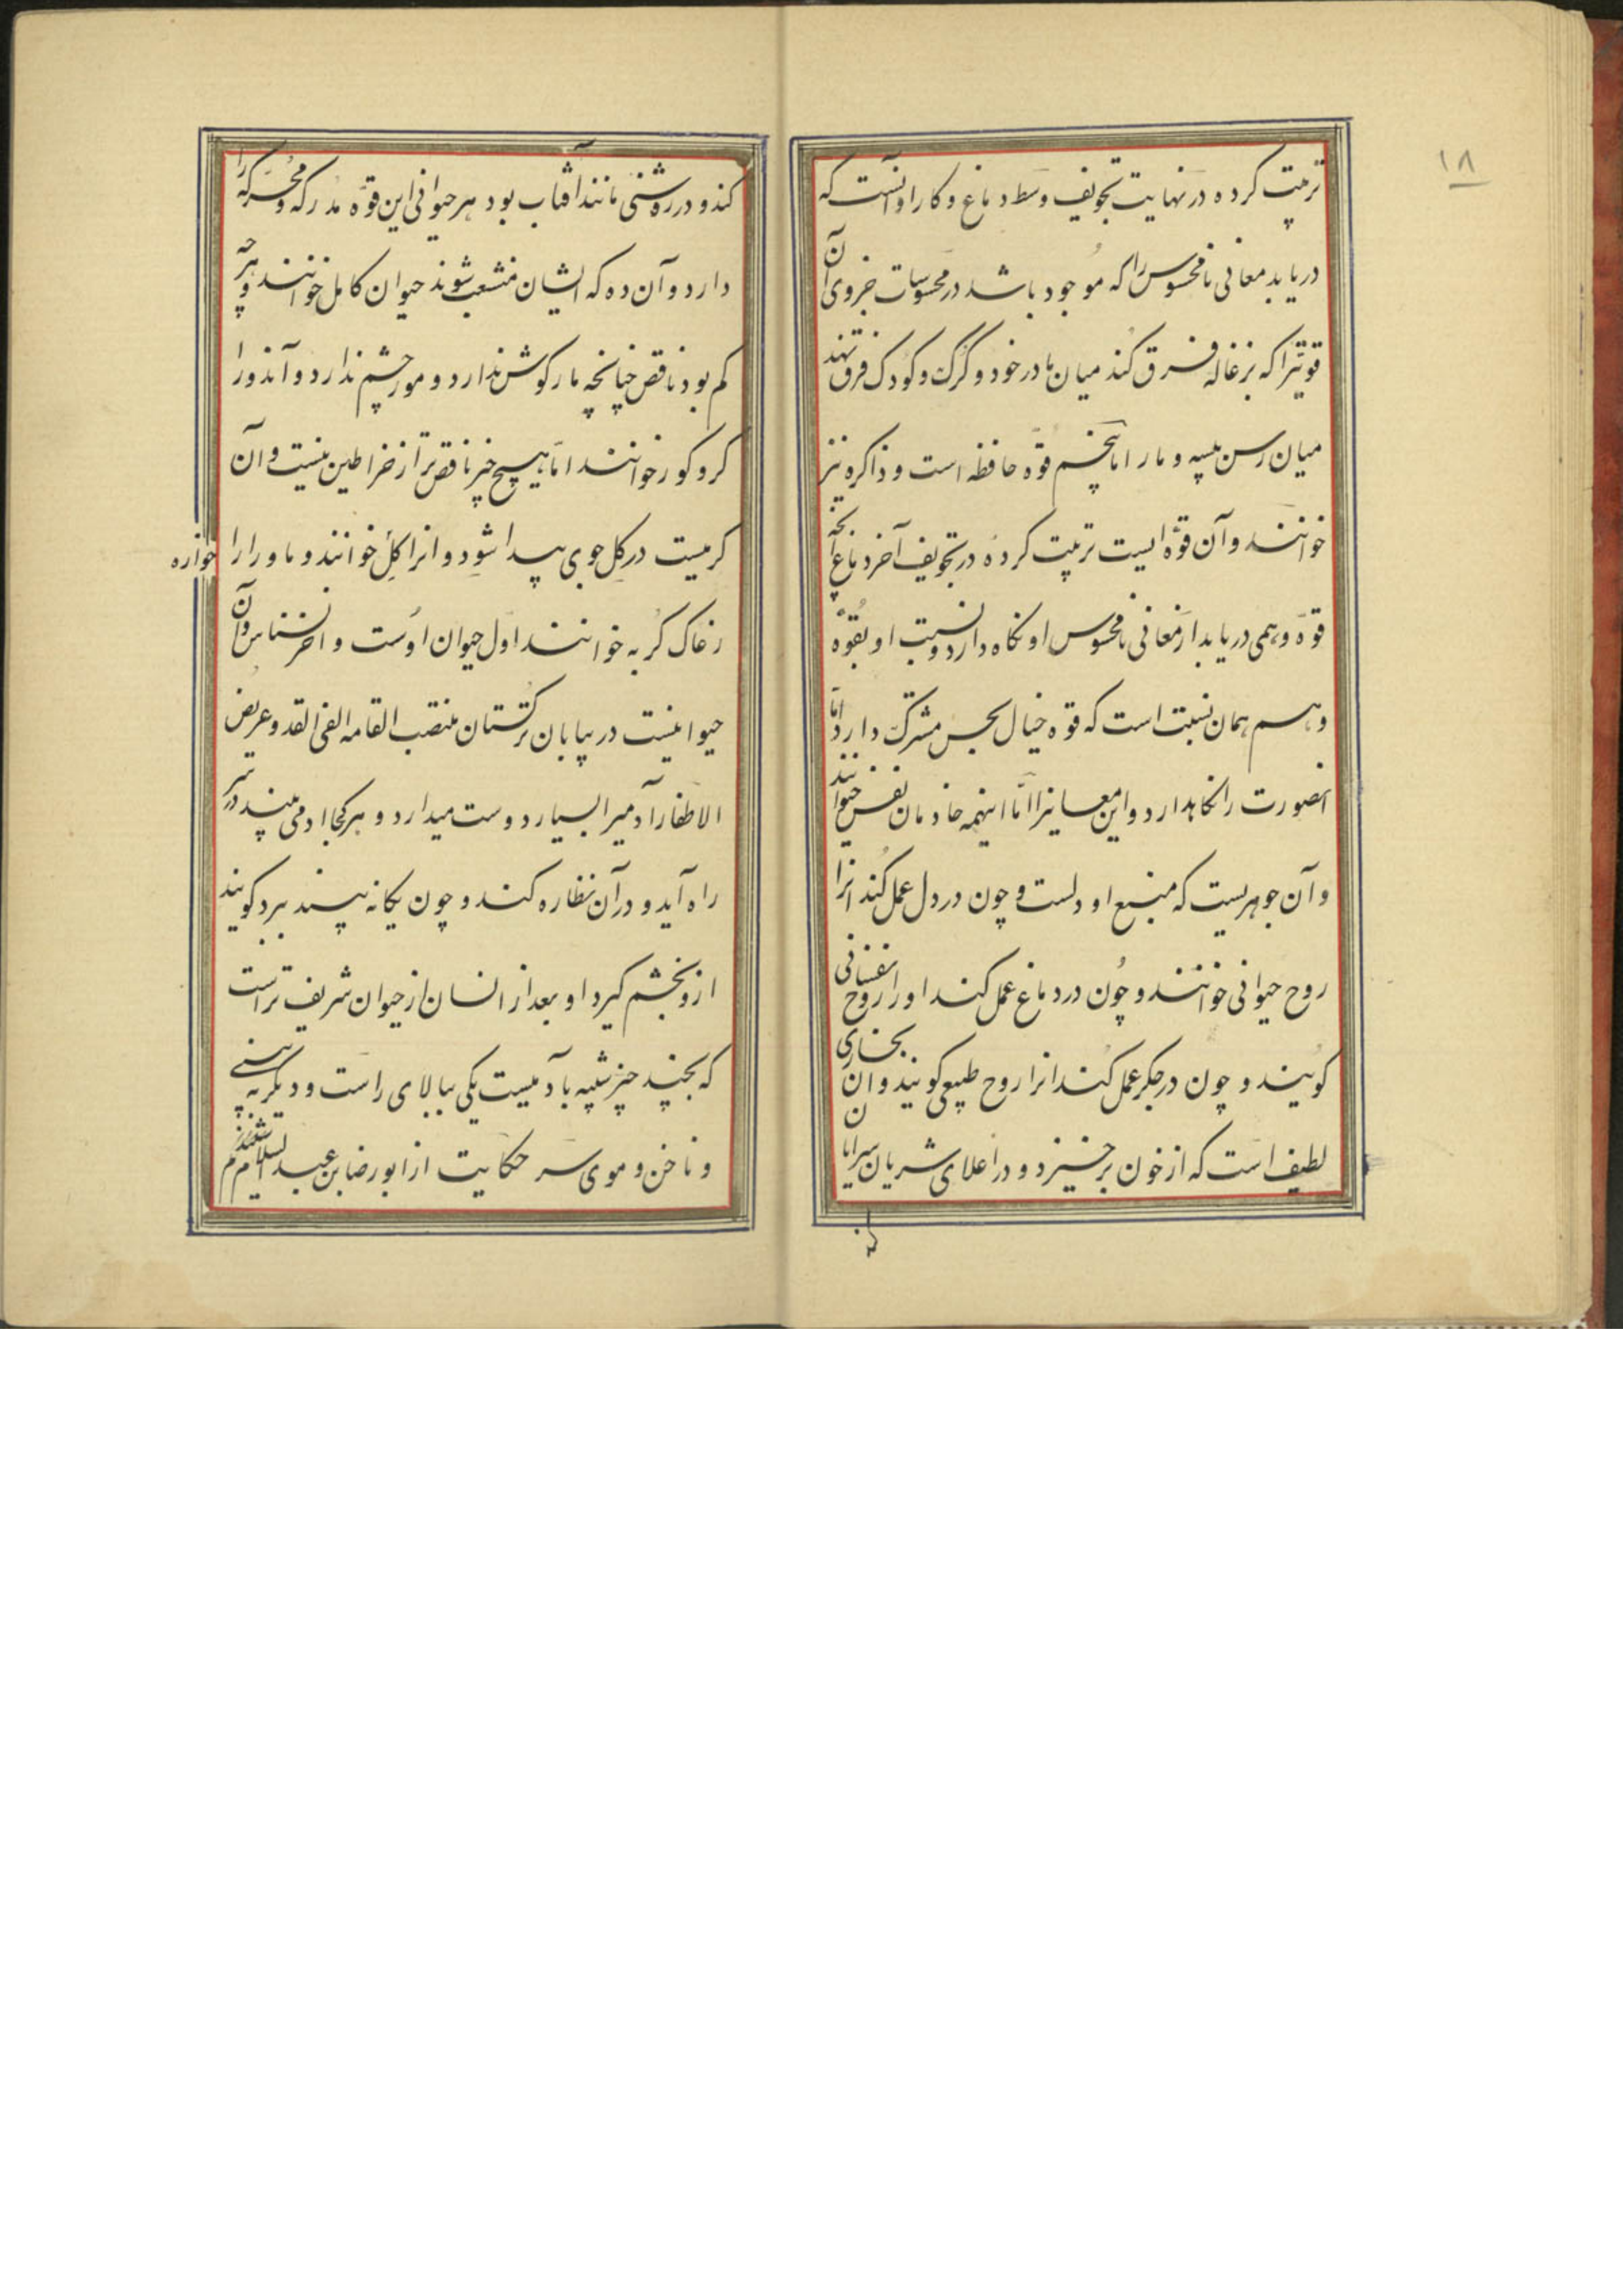 ۱۸
ترتیب کرده در نهایت تجویف وسط دماغ و کار او آنست که
دریابد معانی نامحسوس را که موجود باشد در محسوسات جزوی آن
قوتیرا که بزغاله فرق کند میان مادر خود و گرگ و کودک فرق نهد
میان رسن پیسه و مار اما پنجم قوه حافظه است و ذاکره نیز
خوانند و آن قوه ایست ترتیب کرده در تجویف آخر دماغ آنچه
قوه وهمی دریابد از معانی نامحسوس او نگاه دارد و نسبت او بقوه
وهم همان نسبت است که قوه خیال بحس مشترک دارد اما
آنصورت را نگاهدارد و این معانیرا اما اینهمه خادمان نفس حیوانند
و آن جوهریست که منبع او دلست و چون در دل عمل کند انرا
روح حیوانی خوانند و چون در دماغ عمل کند او را روح نفسانی
گویند و چون در جگر عمل کند انرا روح طبیعی گویند و ان بخاری
لطیف است که از خون برخیزد و در اعلای شریان سرایان
کند
کند و در روشنی مانند آفتاب بود هر حیوانی این قوه مدرکه و محرکه را
دارد و آن ده که ایشان منشعب شوند حیوان کامل خوانند و هر چه
کم بود ناقص چنانچه مار گوش ندارد و مور چشم ندارد و آندو را
کر و کور خوانند اما هیچ چیز ناقص‌تر از خراطین نیست و آن
کرمیست در گل جوی پیدا شود و انرا گل خواره خوانند و ماورا را
زغاک کربه خوانند اول حیوان اوست و اخر نسناس و آن
حیوانیست در بیابان ترکستان منتصب القامه الفی القد و عریض
الاظفار آدمیرا بسیار دوست میدارد و هر کجا ادمی بیند در سر
راه آید و در آن نظاره کند و چون یکانه بیند ببرد گویند
ازو تخم گیرد او بعد از انسان از حیوان شریف تر است
که بچند چیز شبیه با آدمیست یکی ببالای راست و دیگر به پهنی
و ناخن و موی سر حکایت از ابو رضا بن عبد السلام شنیدم